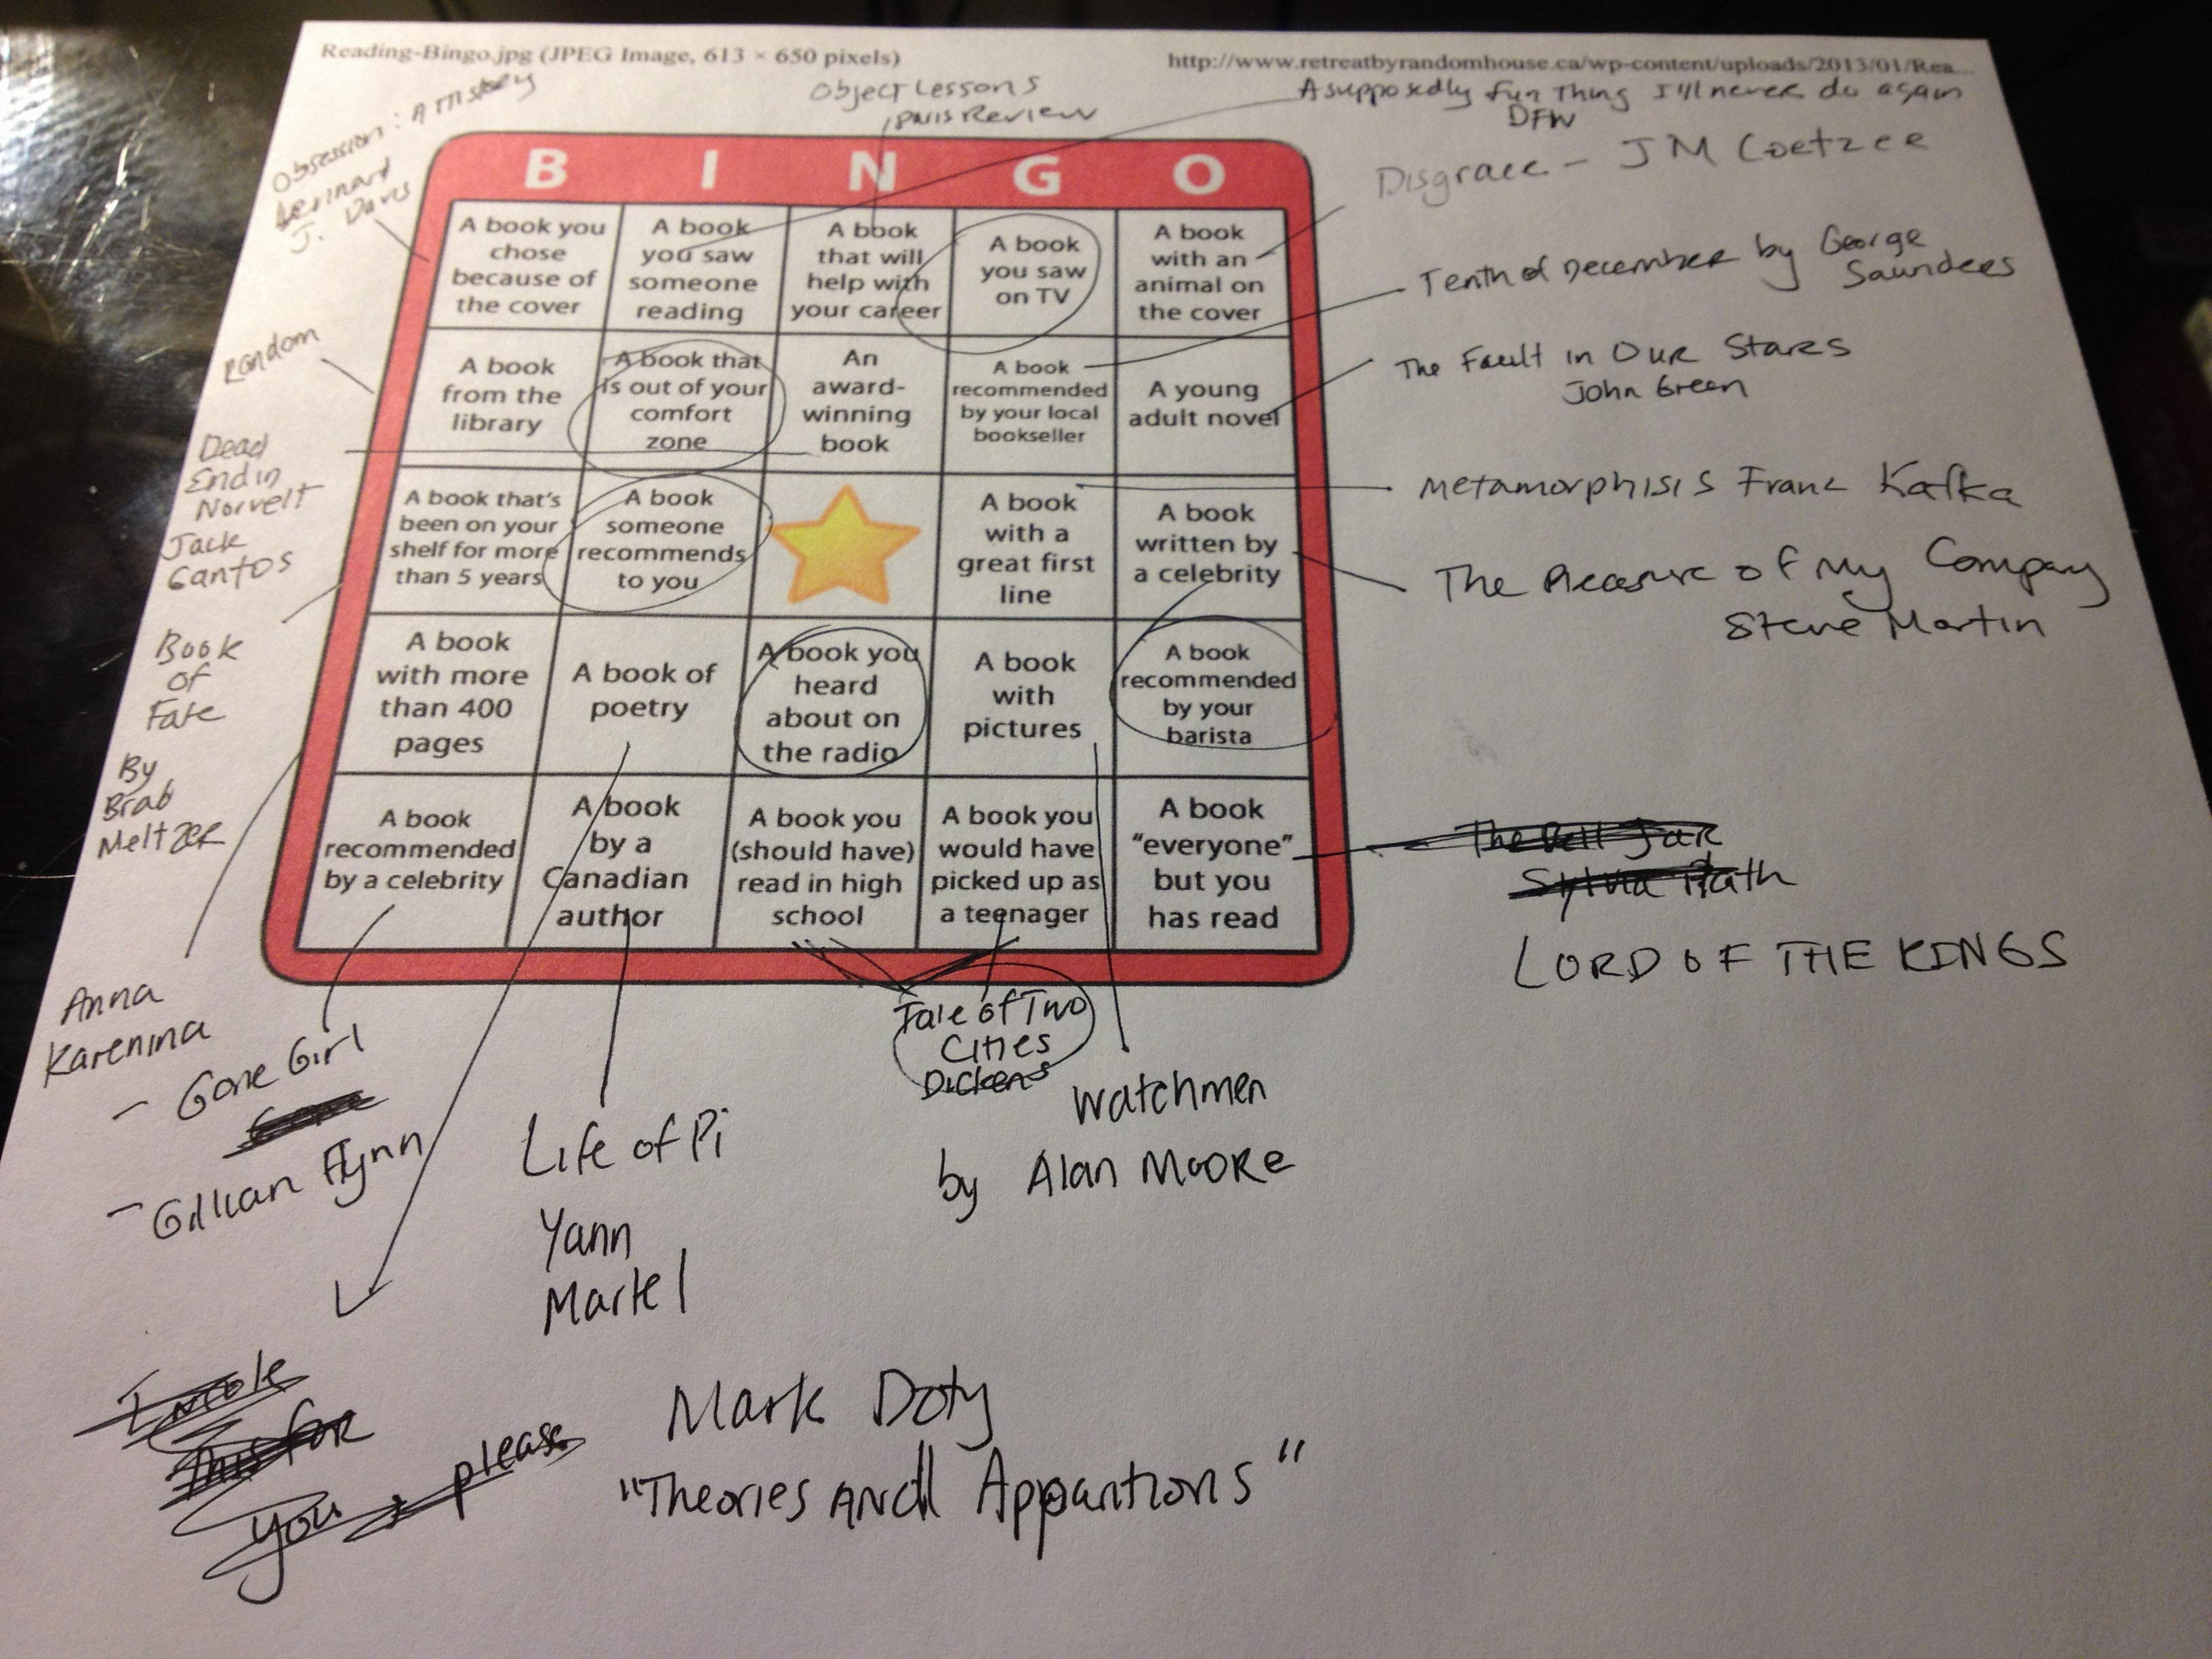 Reading-Bingo.jpg (JPEG Image, 613 × 650 pixels)
http://www.retreatbyrandomhouse.ca/wp-content/uploads/2013/01/Rea...
Obsession: A History
Lennard
J. Davis
Object Lessons
Paris Review
A supposedly fun thing I'll never do again
DFW
Disgrace - JM Coetzee
B I N G O
A book you
chose
because of
the cover
A book
you saw
someone
reading
A book
that will
help with
your career
A book
you saw
on TV
A book
with an
animal on
the cover
Tenth of December by George
Saunders
Random
A book
from the
library
A book that
is out of your
comfort
zone
An
award-
winning
book
A book
recommended
by your local
bookseller
A young
adult novel
The Fault in Our Stars
John Green
Dead
End in
Norvelt
Jack
Gantos
A book that's
been on your
shelf for more
than 5 years
A book
someone
recommends
to you
A book
with a
great first
line
A book
written by
a celebrity
Metamorphisis Franz Kafka
The Pleasure of My Company
Steve Martin
Book
of
Fate
By
Brad
Meltzer
A book
with more
than 400
pages
A book of
poetry
A book you
heard
about on
the radio
A book
with
pictures
A book
recommended
by your
barista
A book
recommended
by a celebrity
A book
by a
Canadian
author
A book you
(should have)
read in high
school
A book you
would have
picked up as
a teenager
A book
“everyone”
but you
has read
The Bell Jar
Sylvia Plath
LORD OF THE RINGS
Anna
Karenina
- Gone Girl
- Gillian Flynn
Tale of Two
Cities
Dickens
Life of Pi
Yann
Martel
Watchmen
by Alan Moore
I wrote
this for
you, please
Mark Doty
"Theories and Apparitions"